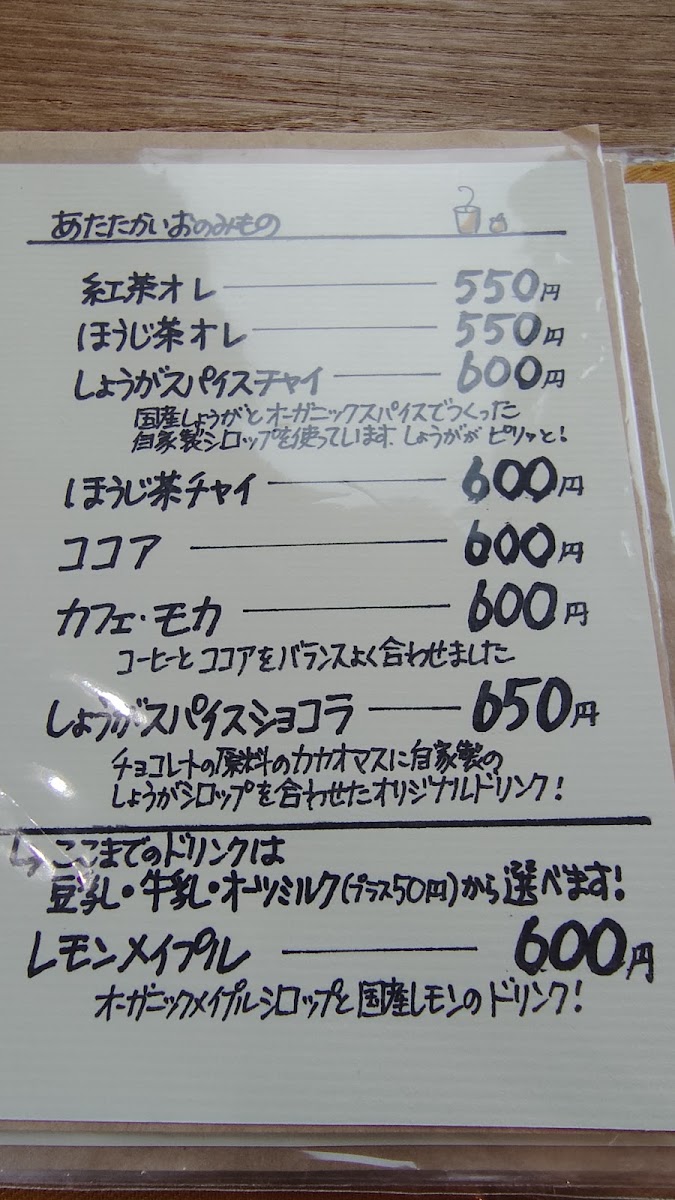 あたたかいおのみもの
紅茶オレ 550円
ほうじ茶オレ 550円
しょうがスパイスチャイ 600円
国産しょうがとオーガニックスパイスでつくった
自家製シロップを使っています しょうががピリッと!
ほうじ茶チャイ 600円
ココア 600円
カフェ・モカ 600円
コーヒーとココアをバランスよく合わせました
しょうがスパイスショコラ 650円
チョコレートの原料のカカオマスに自家製の
しょうがシロップを合わせたオリジナルドリンク!
↳ ここまでのドリンクは
豆乳・牛乳・オーツミルク(プラス50円)から選べます!
レモンメイプル 600円
オーガニックメイプルシロップと国産レモンのドリンク!